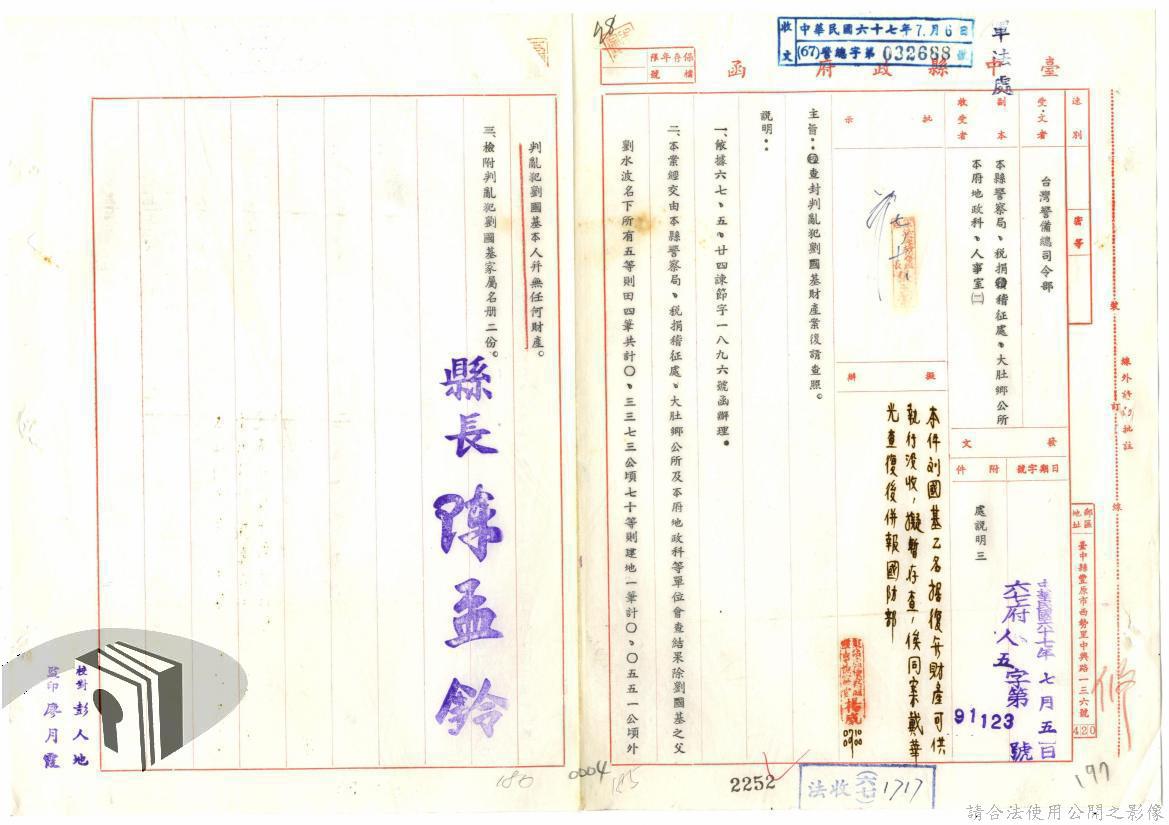 收文
中華民國六十七年7月6日
(67)警總字第032688號
軍法處
臺中縣政府 函
保存年限
檔號
速別
密等
受文者
台灣警備總司令部
副本收受者
本縣警察局、稅捐稽征處、大肚鄉公所
本府地政科、人事室㈡
發文
日期字號
中華民國六十七年七月五日
六七府人五字第91123號
附件
處說明三
郵區地址
臺中縣豐原市西勢里中興路一三六號
420
裝訂線
線外請勿批註
批示
擬辦
本件劉國基乙名據復無財產可供
執行沒收,擬暫存查,俟同案戴華
光查復後併報國防部
主旨:查封判亂犯劉國基財產業復請查照。
說明:
一、依據六七、五、廿四諫節字一八九六號函辦理。
二、本業經交由本縣警察局、稅捐稽征處、大肚鄉公所及本府地政科等單位會查結果除劉國基之父
劉水波名下所有五等則田四筆共計〇、三三七三公頃七十等則建地一筆計〇、〇五五一公頃外
判亂犯劉國基本人幷無任何財產。
三、檢附判亂犯劉國基家屬名册二份。
縣長 陳孟鈴
校對 彭人地
監印 廖月霞
186
0004
185
2252
法收(六七)1717
197
請合法使用公開之影像